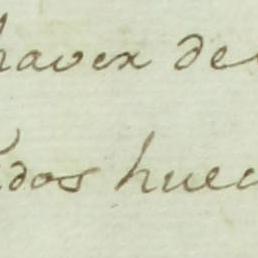 haver de
dos huec